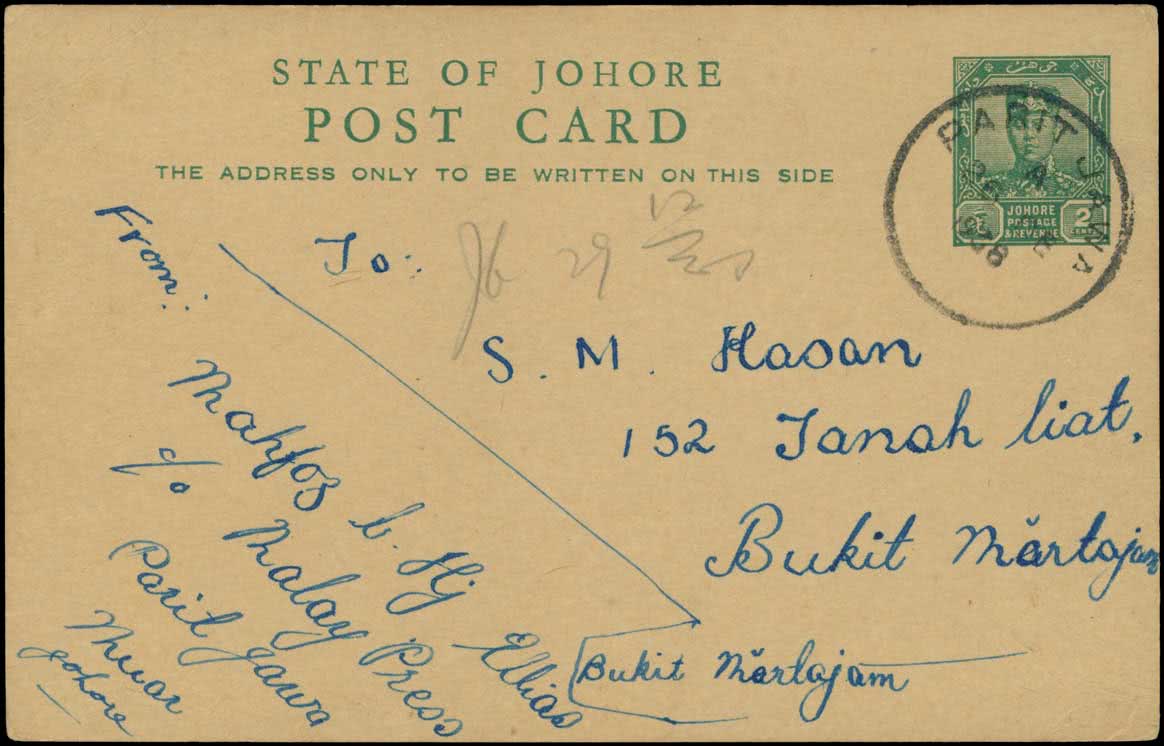 STATE OF JOHORE
POST CARD
THE ADDRESS ONLY TO BE WRITTEN ON THIS SIDE
JOHORE
POSTAGE
& REVENUE
2
CENTS
PARIT JAWA
To:
S. M. Hasan
152 Tanah liat,
Bukit Mărtajam
Bukit Mărtajam
From:
Mahfoz b. Hj Ellias
c/o Malay Press
Parit Jawa
Muar
Johore
29